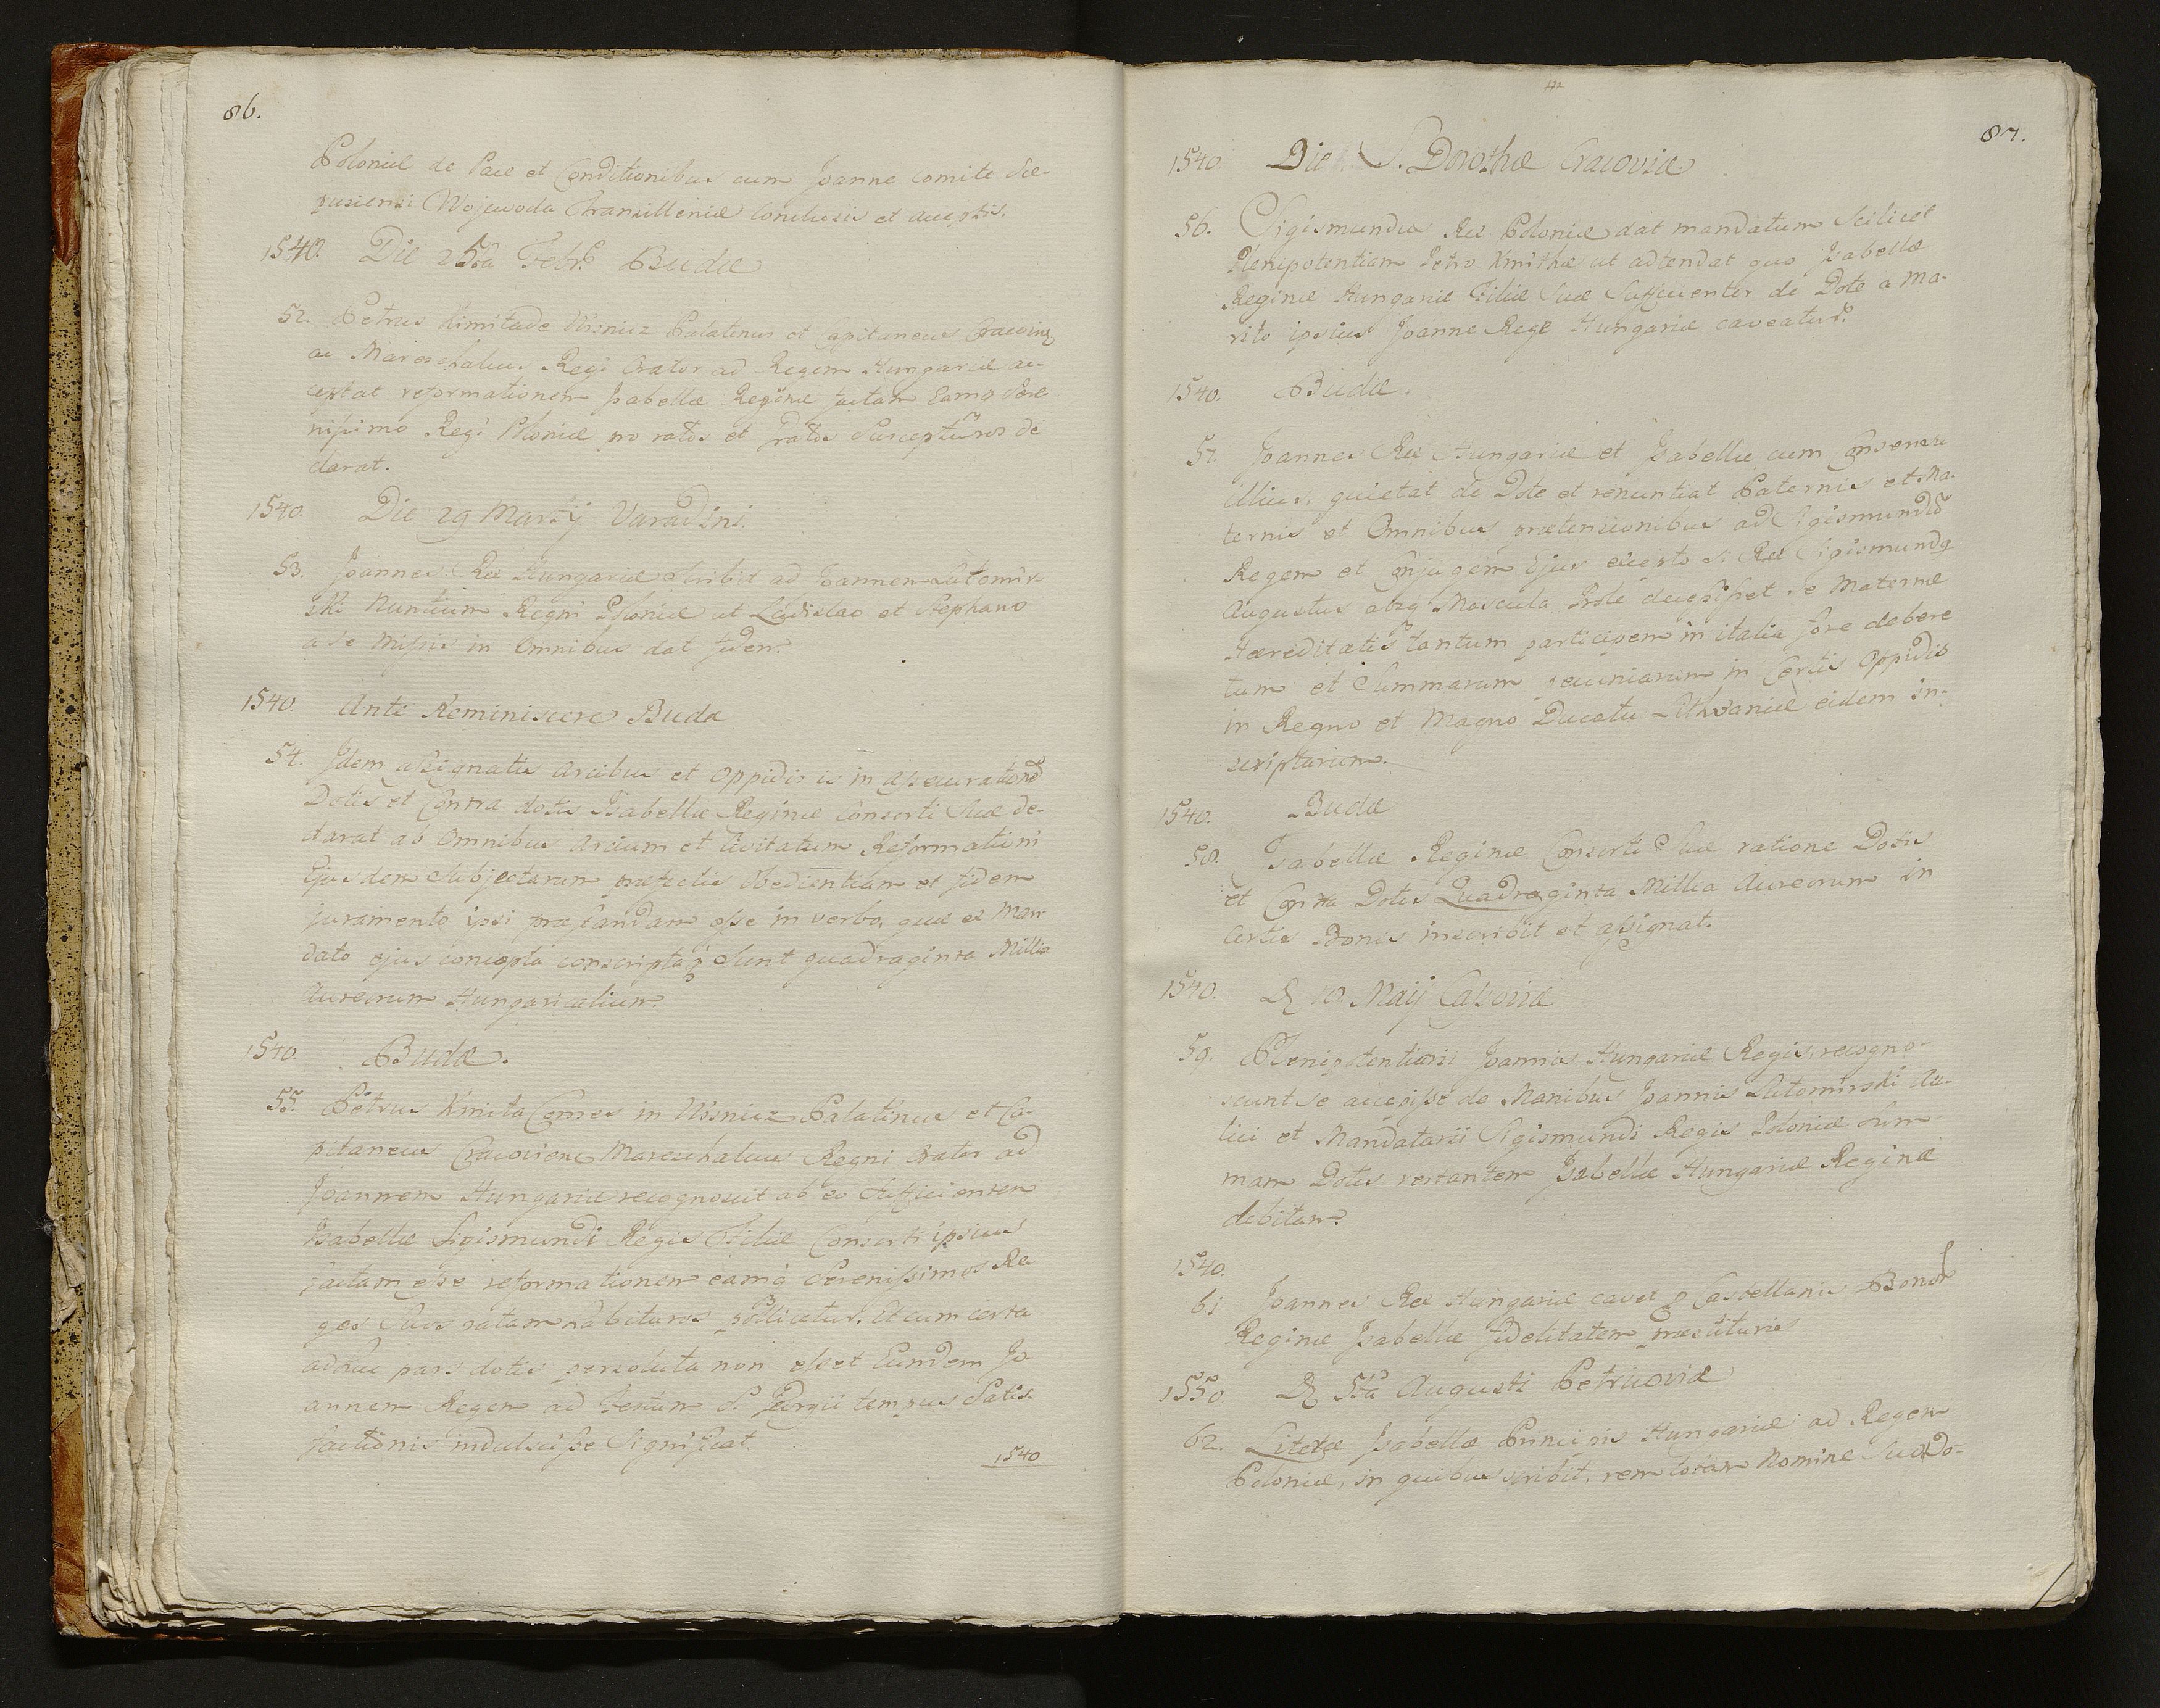 86.
Poloniæ de Pace et Conditionibus cum Joanne Comite Sce-
pusiensi Wojewoda Transilleniæ conclusis et acceptis.
1540. Die 25ta Febr. Budæ
52. Petrus Kmitade Wisnicz Palatinus et Capitaneus Cracovien
ac Mareschalcus Regi Orator ad Regem Hungariæ ac-
ceptat reformationem Isabellæ Reginæ factam Eamq Sere
nissimo Regi Poloniæ pro ratos et gratos Suscepturos de
clarat.
1540. Die 29 Martij Varadini.
53. Joannes Rex Hungariæ scribit ad Joannem Lutomir-
ski Nuntium Regni Poloniæ ut Ladislao et Stephano
a se missis in Omnibus dat fidem.
1540. Ante Reminiscere Budæ
54. Idem assignatis Arcibus et Oppidis in assecurationē
Dotis et Contra dotis Isabellæ Reginæ Consorti Suæ de-
darat ab Omnibus Arcium et Civitatum Reformationi
Ejusdem Subjectarum præfectis Obedientiam et fidem
juramento ipsi præstandam esse in verba, quæ ex Man
dato ejus concepta conscriptaq Sunt quadraginta Millia
Aureorum Hungaricalium.
1540. Budæ.
55. Petrus Kmita Comes in Wisnicz Palatinus et Ca-
pitaneus Cracovien Mareschalcus Regni Orator ad
Joannem Hungariæ recognoscit ab eo Sufficientem
Isabellæ Sigismundi Regis Filiæ Consorti ipsius
factam esse reformationem eamq Serenissimos Re
ges Suos ratam habituros pollicetur. Et cum certa
adhuc pars dotis persoluta non esset Eundem Jo
annem Regem ad Festum S. Georgii tempus Satis-
factionis indulsisse Significat.
1540
87.
1540. Die S. Dorothæ Cracoviæ
56. Sigismundus Rex Poloniæ dat mandatum Scilicet
Plenipotentiam Petro Kmithæ ut adtendat quo Isabellæ
Reginæ Hungariæ Filiæ Suæ Sufficienter de Dote a Ma-
rito ipsius Joanne Rege Hungariæ caveatur.
1540. Budæ.
57. Joannes Rex Hungariæ et Isabella cum Consensu
illius, quietat de Dote et renuntiat Paternis et Ma-
ternis et Omnibus prætensionibus ad Sigismundū
Regem et Conjugem Ejus excepto si Rex Sigismundq
Augustus absq Mascula Prole decessisset se Maternæ
Hæreditatis tantum participem in italia fore debere
tum et Summarum pecuniarum in Certis Oppidis
in Regno et Magno Ducatu Lithvaniæ eidem in-
scriptarum.
1540. Budæ
58. Isabellæ Reginæ Consorti Suæ ratione Dotis
et Contra Dotis Quadraginta Millia Aureorum in
certis Bonis inscribit et assignat.
1540. D 10. Maij Casoviæ
59. Plenipotentiarii Joannis Hungariæ Regis, recogno-
scunt se accepisse de Manibus Joannis Lutomirski Au-
lici et Mandatarii Sigismundi Regis Poloniæ Sum-
mam Dotis restantem Isabellæ Hungariæ Reginæ
debitam.
1540.
61 Joannes Rex Hungariæ cavet p Castellanis Bonor
Reginæ Isabellæ fidelitatem præstituris
1550. D 5ta Augusti Petricoviæ
62. Literæ Isabellæ Principis Hungariæ ad Regem
Poloniæ, in quibus scribit, rem totam Nomine Suo Do-